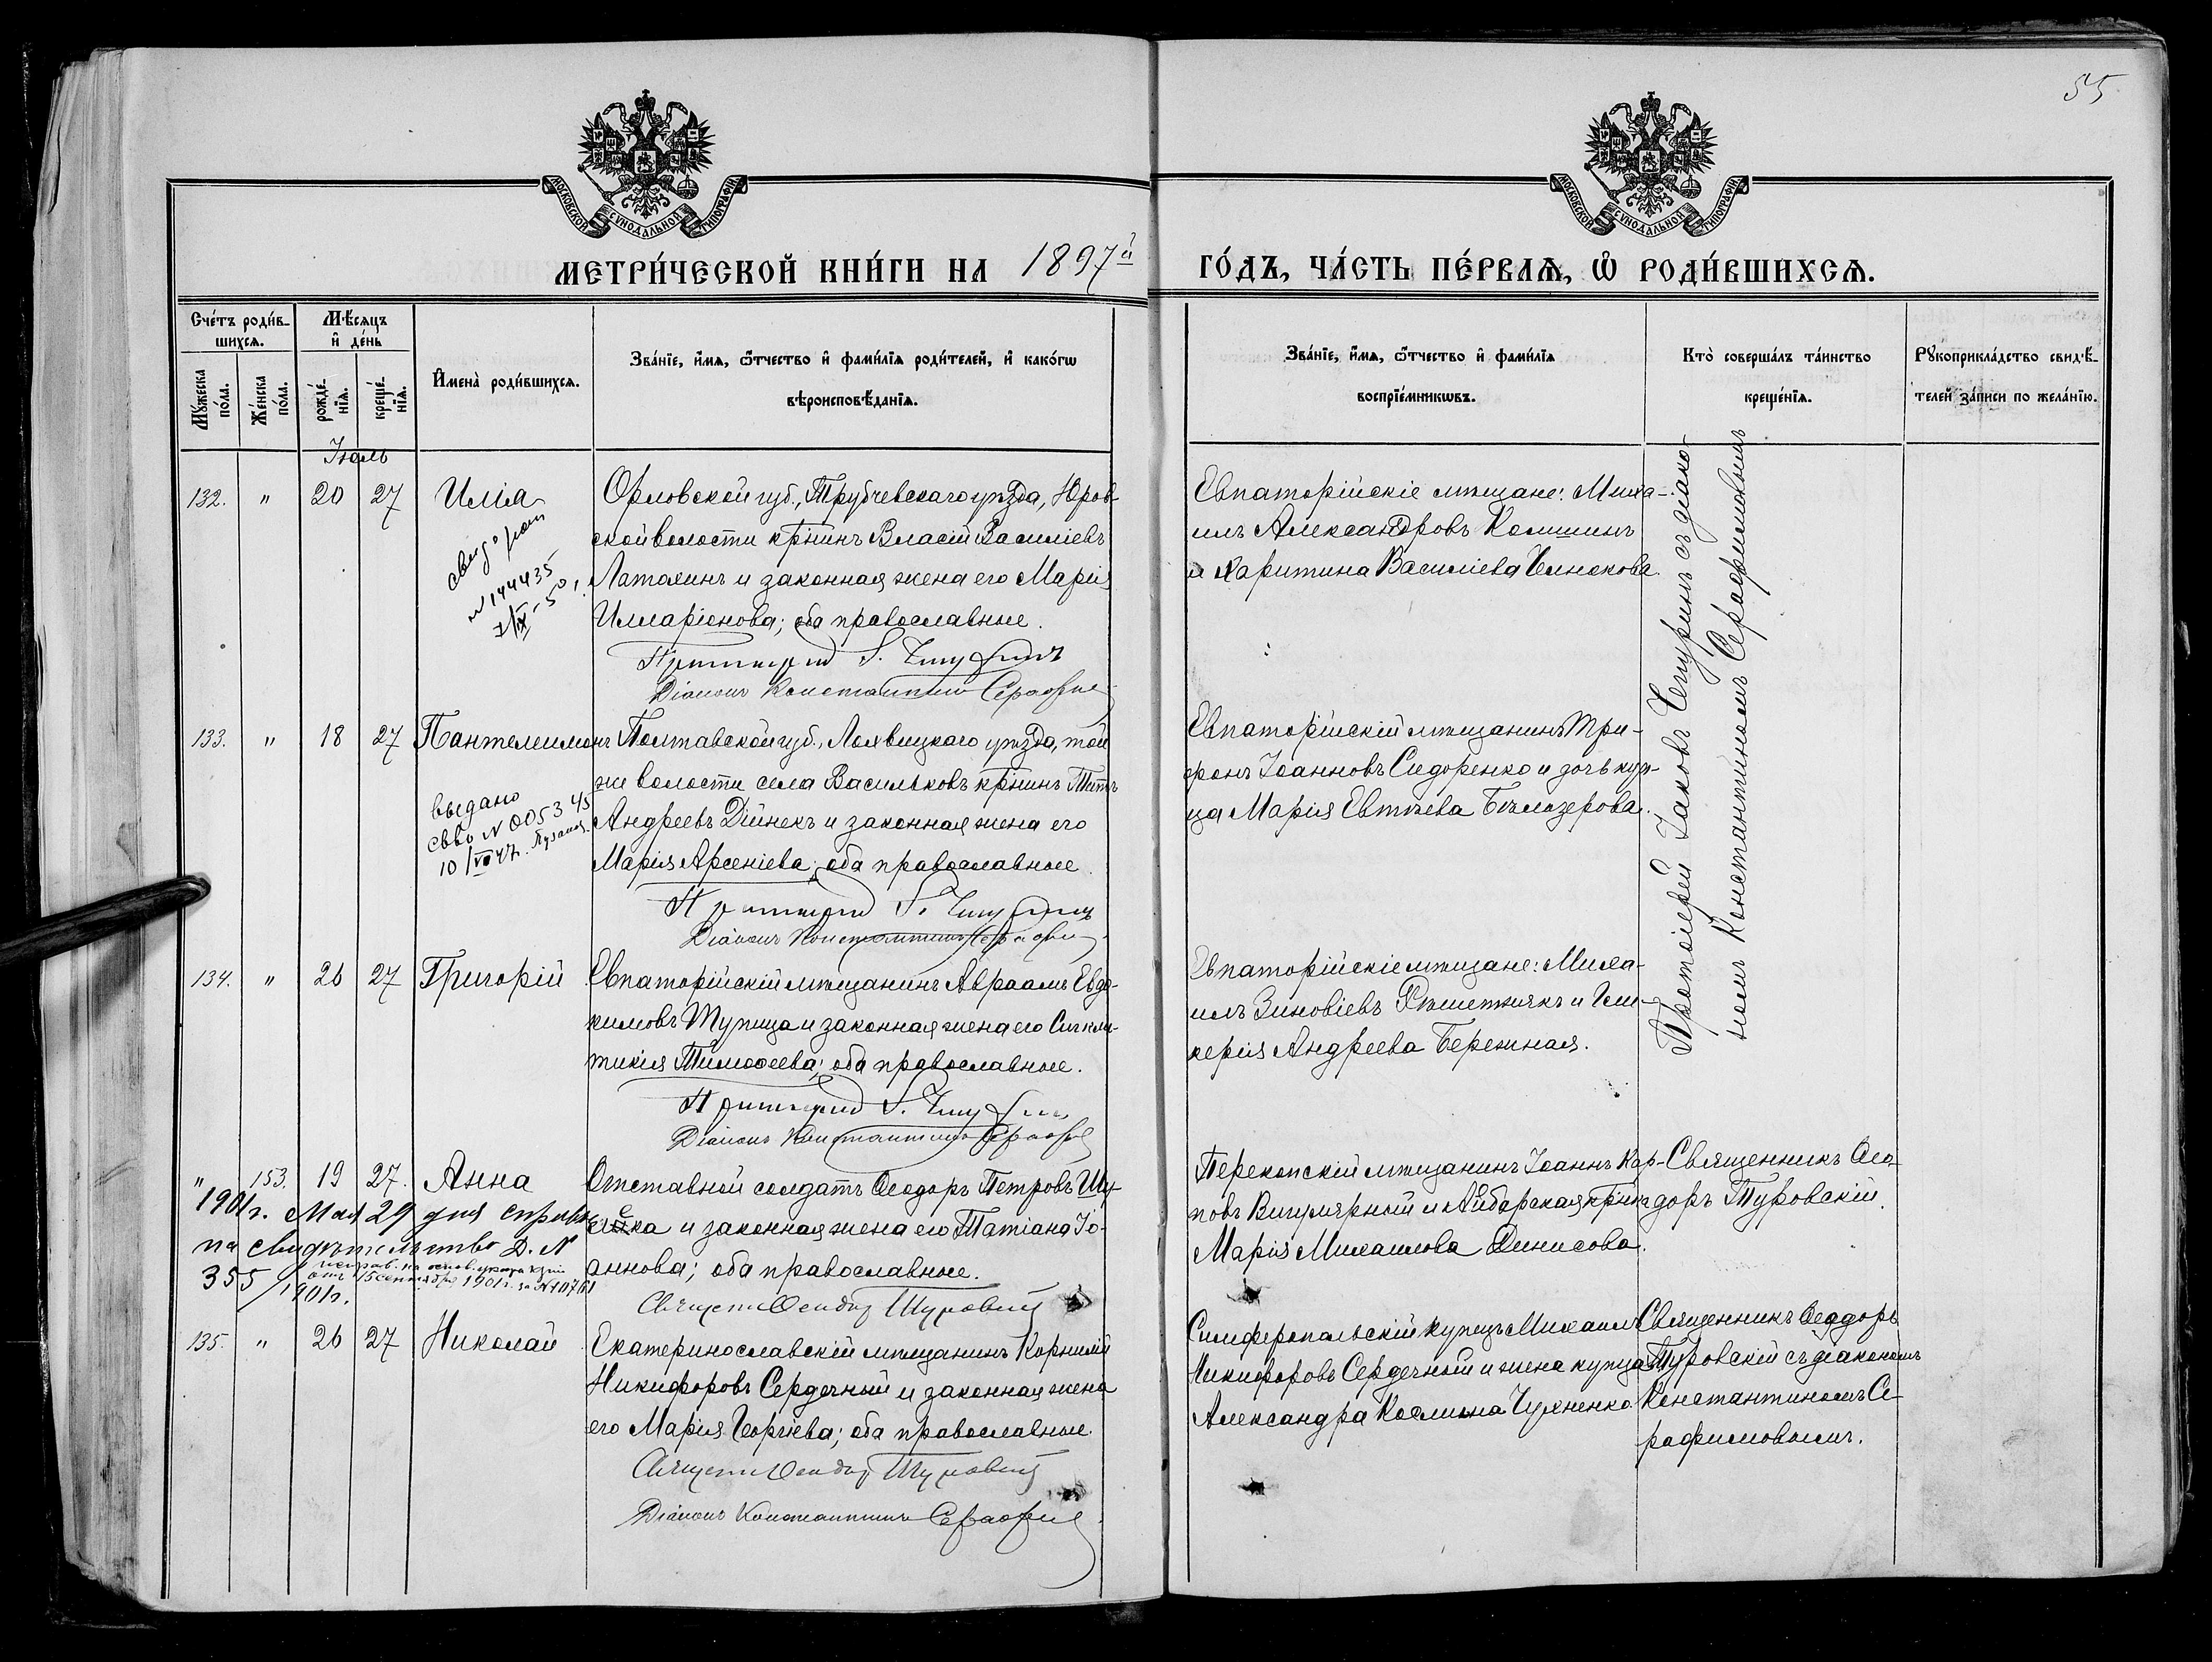 55
МОСКОВСКОЙ СѴНОДАЛЬНОЙ ТИПОГРАФІИ
МОСКОВСКОЙ СѴНОДАЛЬНОЙ ТИПОГРАФІИ
МЕТРИ́ЧЕСКОЙ КНИ́ГИ НА 1897й
ГО́ДЪ, ЧА́СТЬ ПЕ́РВАѦ, Ѽ РОДИ́ВШИХСѦ.
Сче́тъ роди́в-
шихсѧ.
Мꙋ́жеска по́ла.
Же́нска по́ла.
Мѣ́сяцъ и҆ де́нь
рожде́-нїѧ.
креще́-нїѧ.
И҆мена̀ роди́вшихсѧ.
Зва́нїе, и҆́мѧ, ѻ҆́тчество и҆ фами́лїѧ роди́телей, и҆ како́гѡ
вѣроисповѣ́данїѧ.
Зва́нїе, и҆́мѧ, ѻ҆́тчество и҆ фами́лїѧ
воспрїе́мникѡвъ.
Кто̀ соверша́лъ та́инство
креще́нїѧ.
Рꙋкоприкла́дство свидѣ́-
телей за́писи по жела́нїю.
Іюль
132. " 20 27 Илія
Орловской губ., Трубчевскаго уѣзда, Юров-
ской волости крнинъ Власій Василіевъ
Латохинъ и законная жена его Марія
Илларіонова; оба православные.
N 144435
7/IX-50
Протоіерей І. Чепуринъ
Діаконъ Константинъ Серафим
Евпаторійскіе мѣщане: Миха-
илъ Александровъ Калишинъ
и Харитина Василіева Челнокова.
Протоіерей Іаковъ Чепуринъ съ діако-
номъ Константиномъ Серафимовымъ
133. " 18 27 Пантелеимонъ
Полтавской губ., Лохвицкаго уѣзда, той
же волости села Васильковъ крнинъ Титъ
Андреевъ Дійнекъ и законная жена его
Марія Арсеніева; оба православные.
выдано
сввo N 005345
10/VII 47г.
Протоіерей І. Чепуринъ
Діаконъ Константинъ Серафим
Евпаторійскій мѣщанинъ Три-
фонъ Іоанновъ Сидоренко и дочь куп-
ца Марія Евтиева Бѣлозерова.
134. " 26 27 Григорій
Евпаторійскій мѣщанинъ Авраамъ Евдо-
кимовъ Тупица и законная жена его Синкли-
тикія Тимоѳеева; оба православные.
Протоіерей І. Чепуринъ
Діаконъ Константинъ Серафим
Евпаторійскіе мѣщане: Миха-
илъ Зиновіевъ Рѣшетнякъ и Гли-
керія Андреева Бережная.
" 153. 19 27. Анна
Отставной солдатъ Ѳеодоръ Петровъ Шу-
ка и законная жена его Татіана Іо-
аннова; оба православные.
1901г. Мая 29 дня справк
на свидѣтельство Д. N
355/1901г.
исправ. на основ. указа
отъ 15 сентября 1901г. за N 10761
Священ Ѳеодоръ Туровскій
Перекопскій мѣщанинъ Іоаннъ Кар-
повъ Вигулярный и Айбарская крнка
Марія Михаилова Денисова.
Священникъ Ѳео-
доръ Туровскій.
135. " 26 27 Николай
Екатеринославскій мѣщанинъ Корнилій
Никифоровъ Сердечный и законная жена
его Марія Георгіева; оба православные.
Священ Ѳеодоръ Туровскій
Діаконъ Константинъ Серафим
Симферопольскій купецъ Михаилъ
Никифоровъ Сердечный и жена купца
Александра Косьмина Чухненко
Священникъ Ѳеодоръ
Туровскій съ діакономъ
Константиномъ Се-
рафимовымъ.